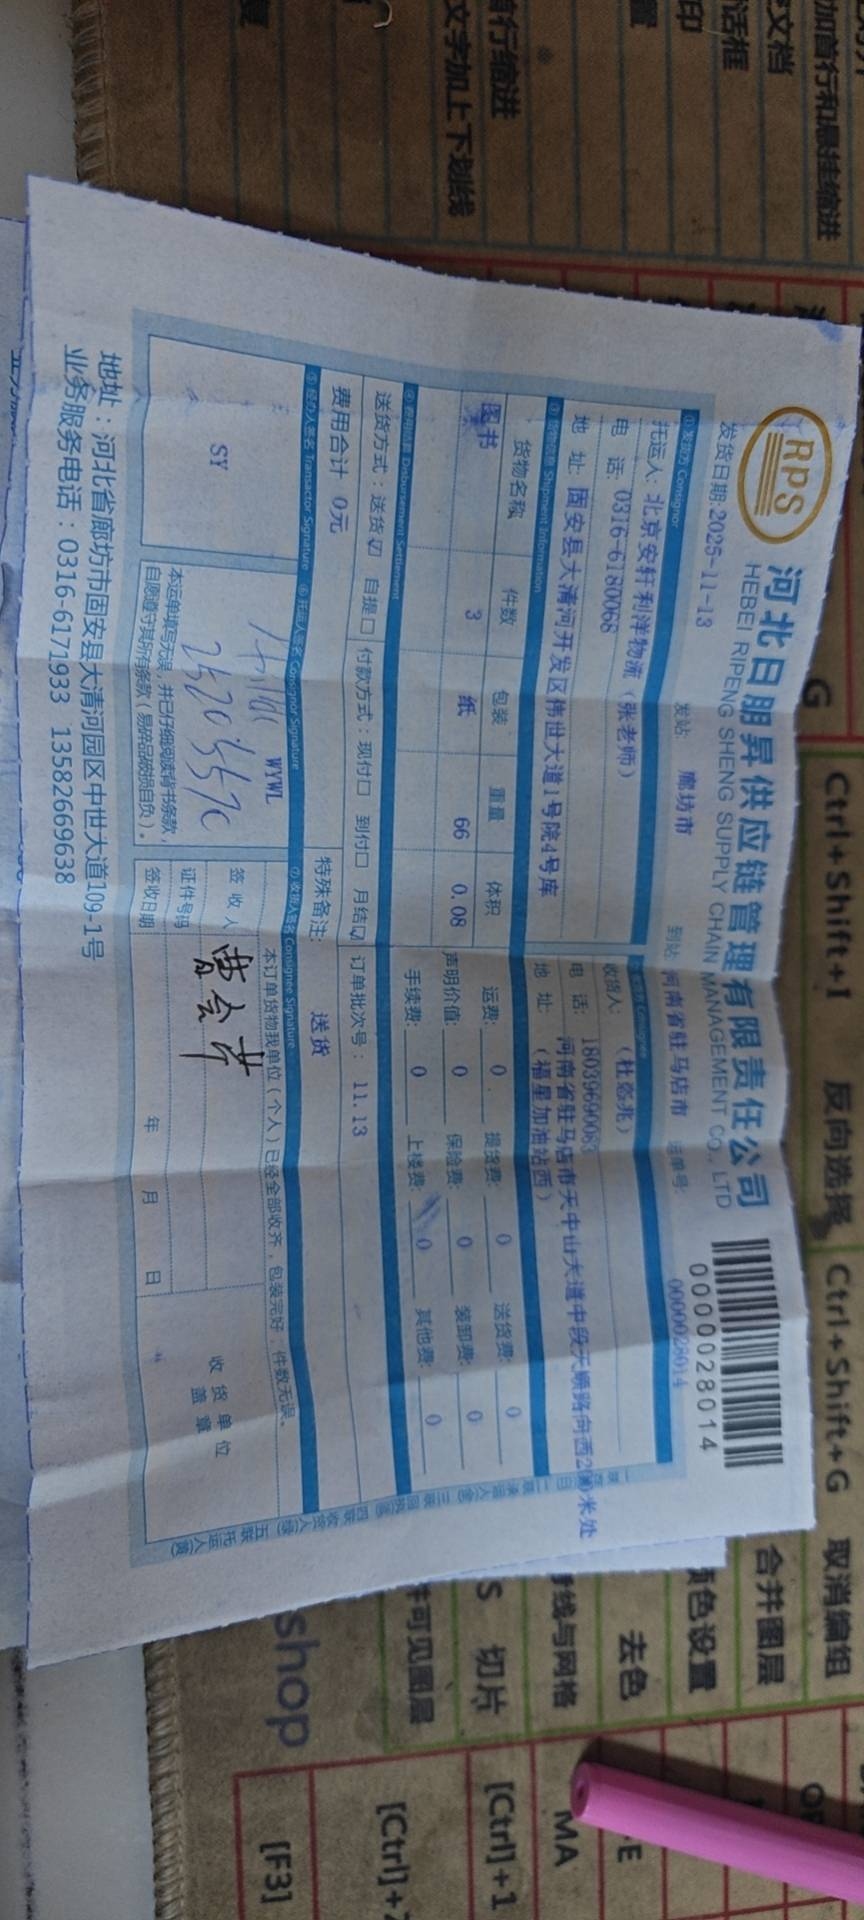 RPS
河北日朋昇供应链管理有限责任公司
HEBEI RIPENG SHENG SUPPLY CHAIN MANAGEMENT CO., LTD
0000028014
发货日期:2025-11-13 发站: 廊坊市 到站 河南省驻马店市 运单号: 0000028014
①发货方 Consignor
托运人: 北京安轩利洋物流 (张老师)
电 话: 0316-6180068
地 址: 固安县大清河开发区伟世大道1号院4号库
收货人:
电 话: 18039690083
地 址: 河南省驻马店市天中山大道中段天顺路向西200米处
(福星加油站西)
③货物信息 Shipment Information
货物名称 件数 包装 重量 体积
图书 3 纸 66 0.08
运费: 0 提货费: 0 送货费: 0
声明价值: 0 保险费: 0 装卸费: 0
手续费: 0 上楼费: 0 其他费: 0
④费用结算 Disbursement Settlement
送货方式:送货☑ 自提□ 付款方式:现付□ 到付□ 月结☑ 订单批次号: 11.13
费用合计 0元 特殊备注: 送货
⑤经办人签名 Transactor Signature ⑥托运人签名 Consignor Signature ⑦收货人签名 Consignee Signature
SY
WYWL
本运单填写无误,并已仔细阅读背书条款,
自愿遵守其所有条款(易碎品破损自负)。
本订单货物我单位(个人)已经全部收齐,包装完好,件数无误。
签 收 人
证件号码
签收日期 年 月 日
收 货 单 位
盖 章
地址:河北省廊坊市固安县大清河园区中世大道109-1号
业务服务电话:0316-6171933 13582669638
首行缩进
文字加上下划线
加首行和悬挂缩进
Ctrl+Shift+I 反向选择
Ctrl+Shift+G 取消编组
合并图层
颜色设置
去色
切片
shop
[Ctrl]+1
[F3]
MA